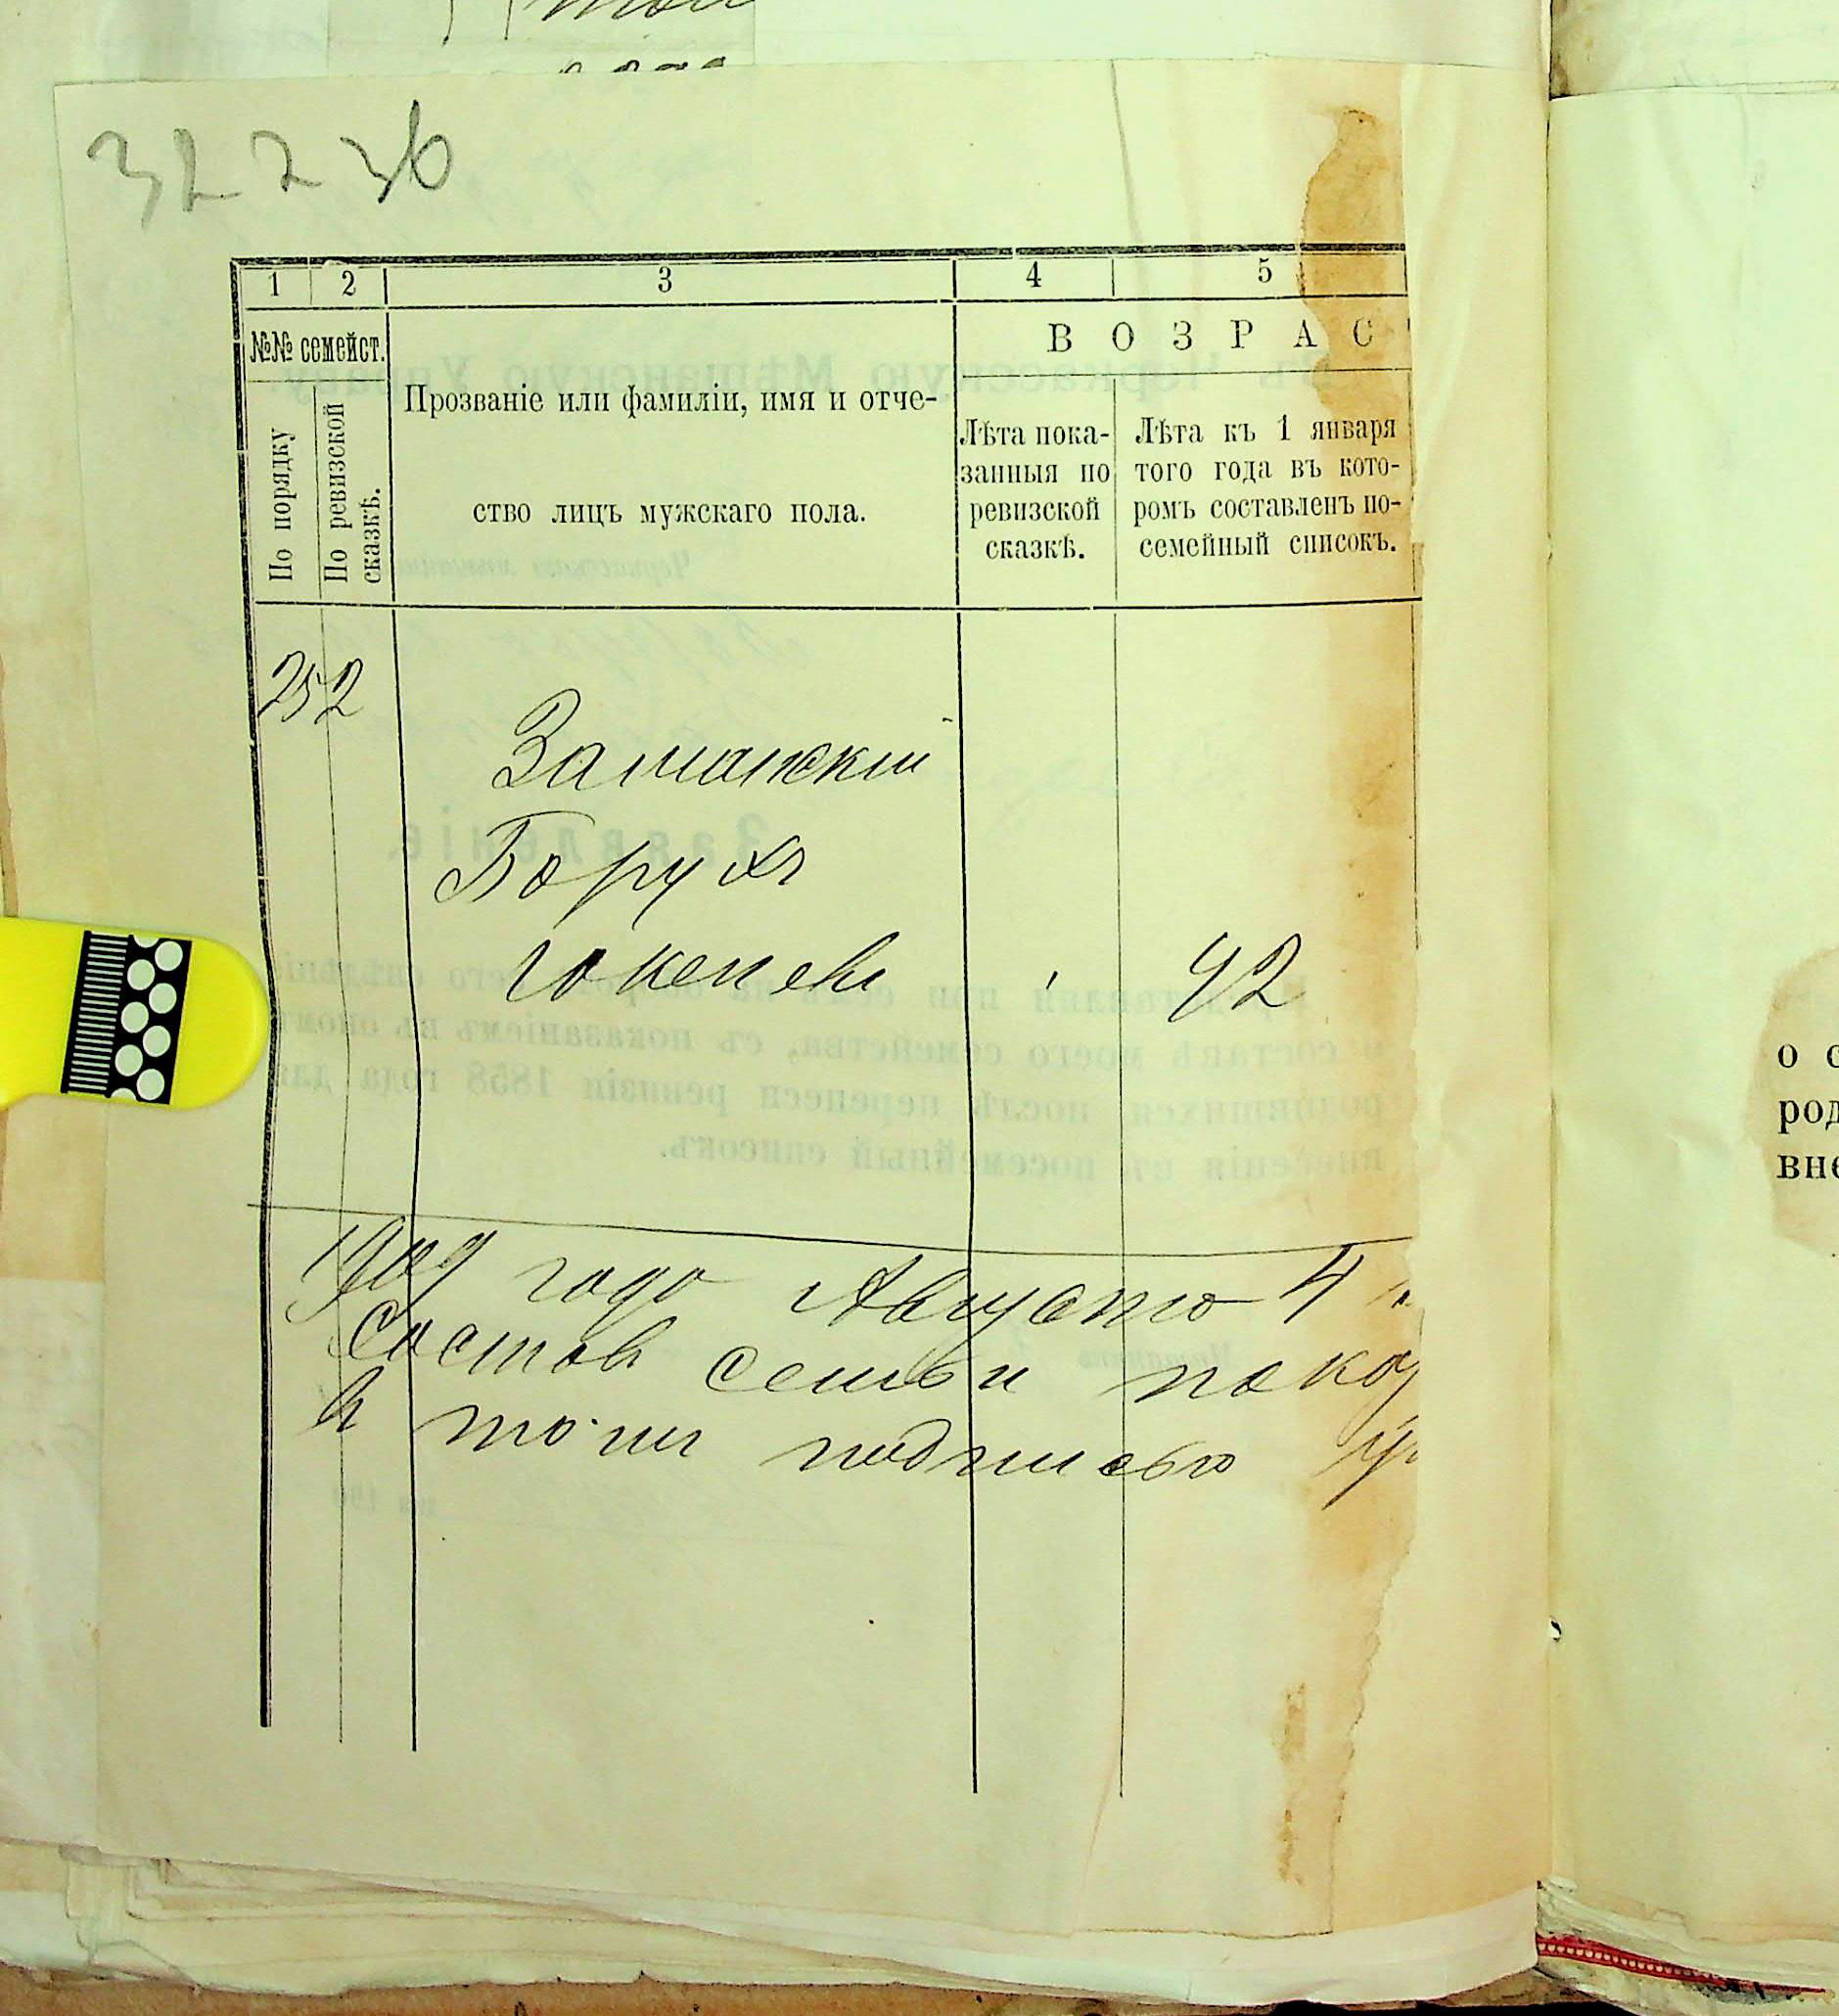 32236
1 2 3 4 5
№№ семейст.
По порядку
По ревизской
сказкѣ.
Прозваніе или фамиліи, имя и отче-
ство лицъ мужскаго пола.
ВОЗРАС
Лѣта пока-
занныя по
ревизской
сказкѣ.
Лѣта къ 1 января
того года въ кото-
ромъ составленъ по-
семейный списокъ.
252
Заманскій
Борухъ
42
1909 года Августа 4
Состав семьи
в том подписью
о с
род
вне